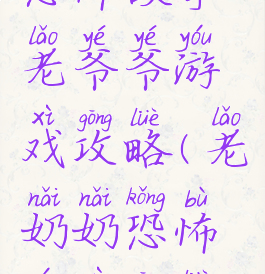 lǎo yé yé yóu
老爷爷游
xì gōng lüè lǎo
戏攻略(老
nǎi nǎi kǒng bù
奶奶恐怖